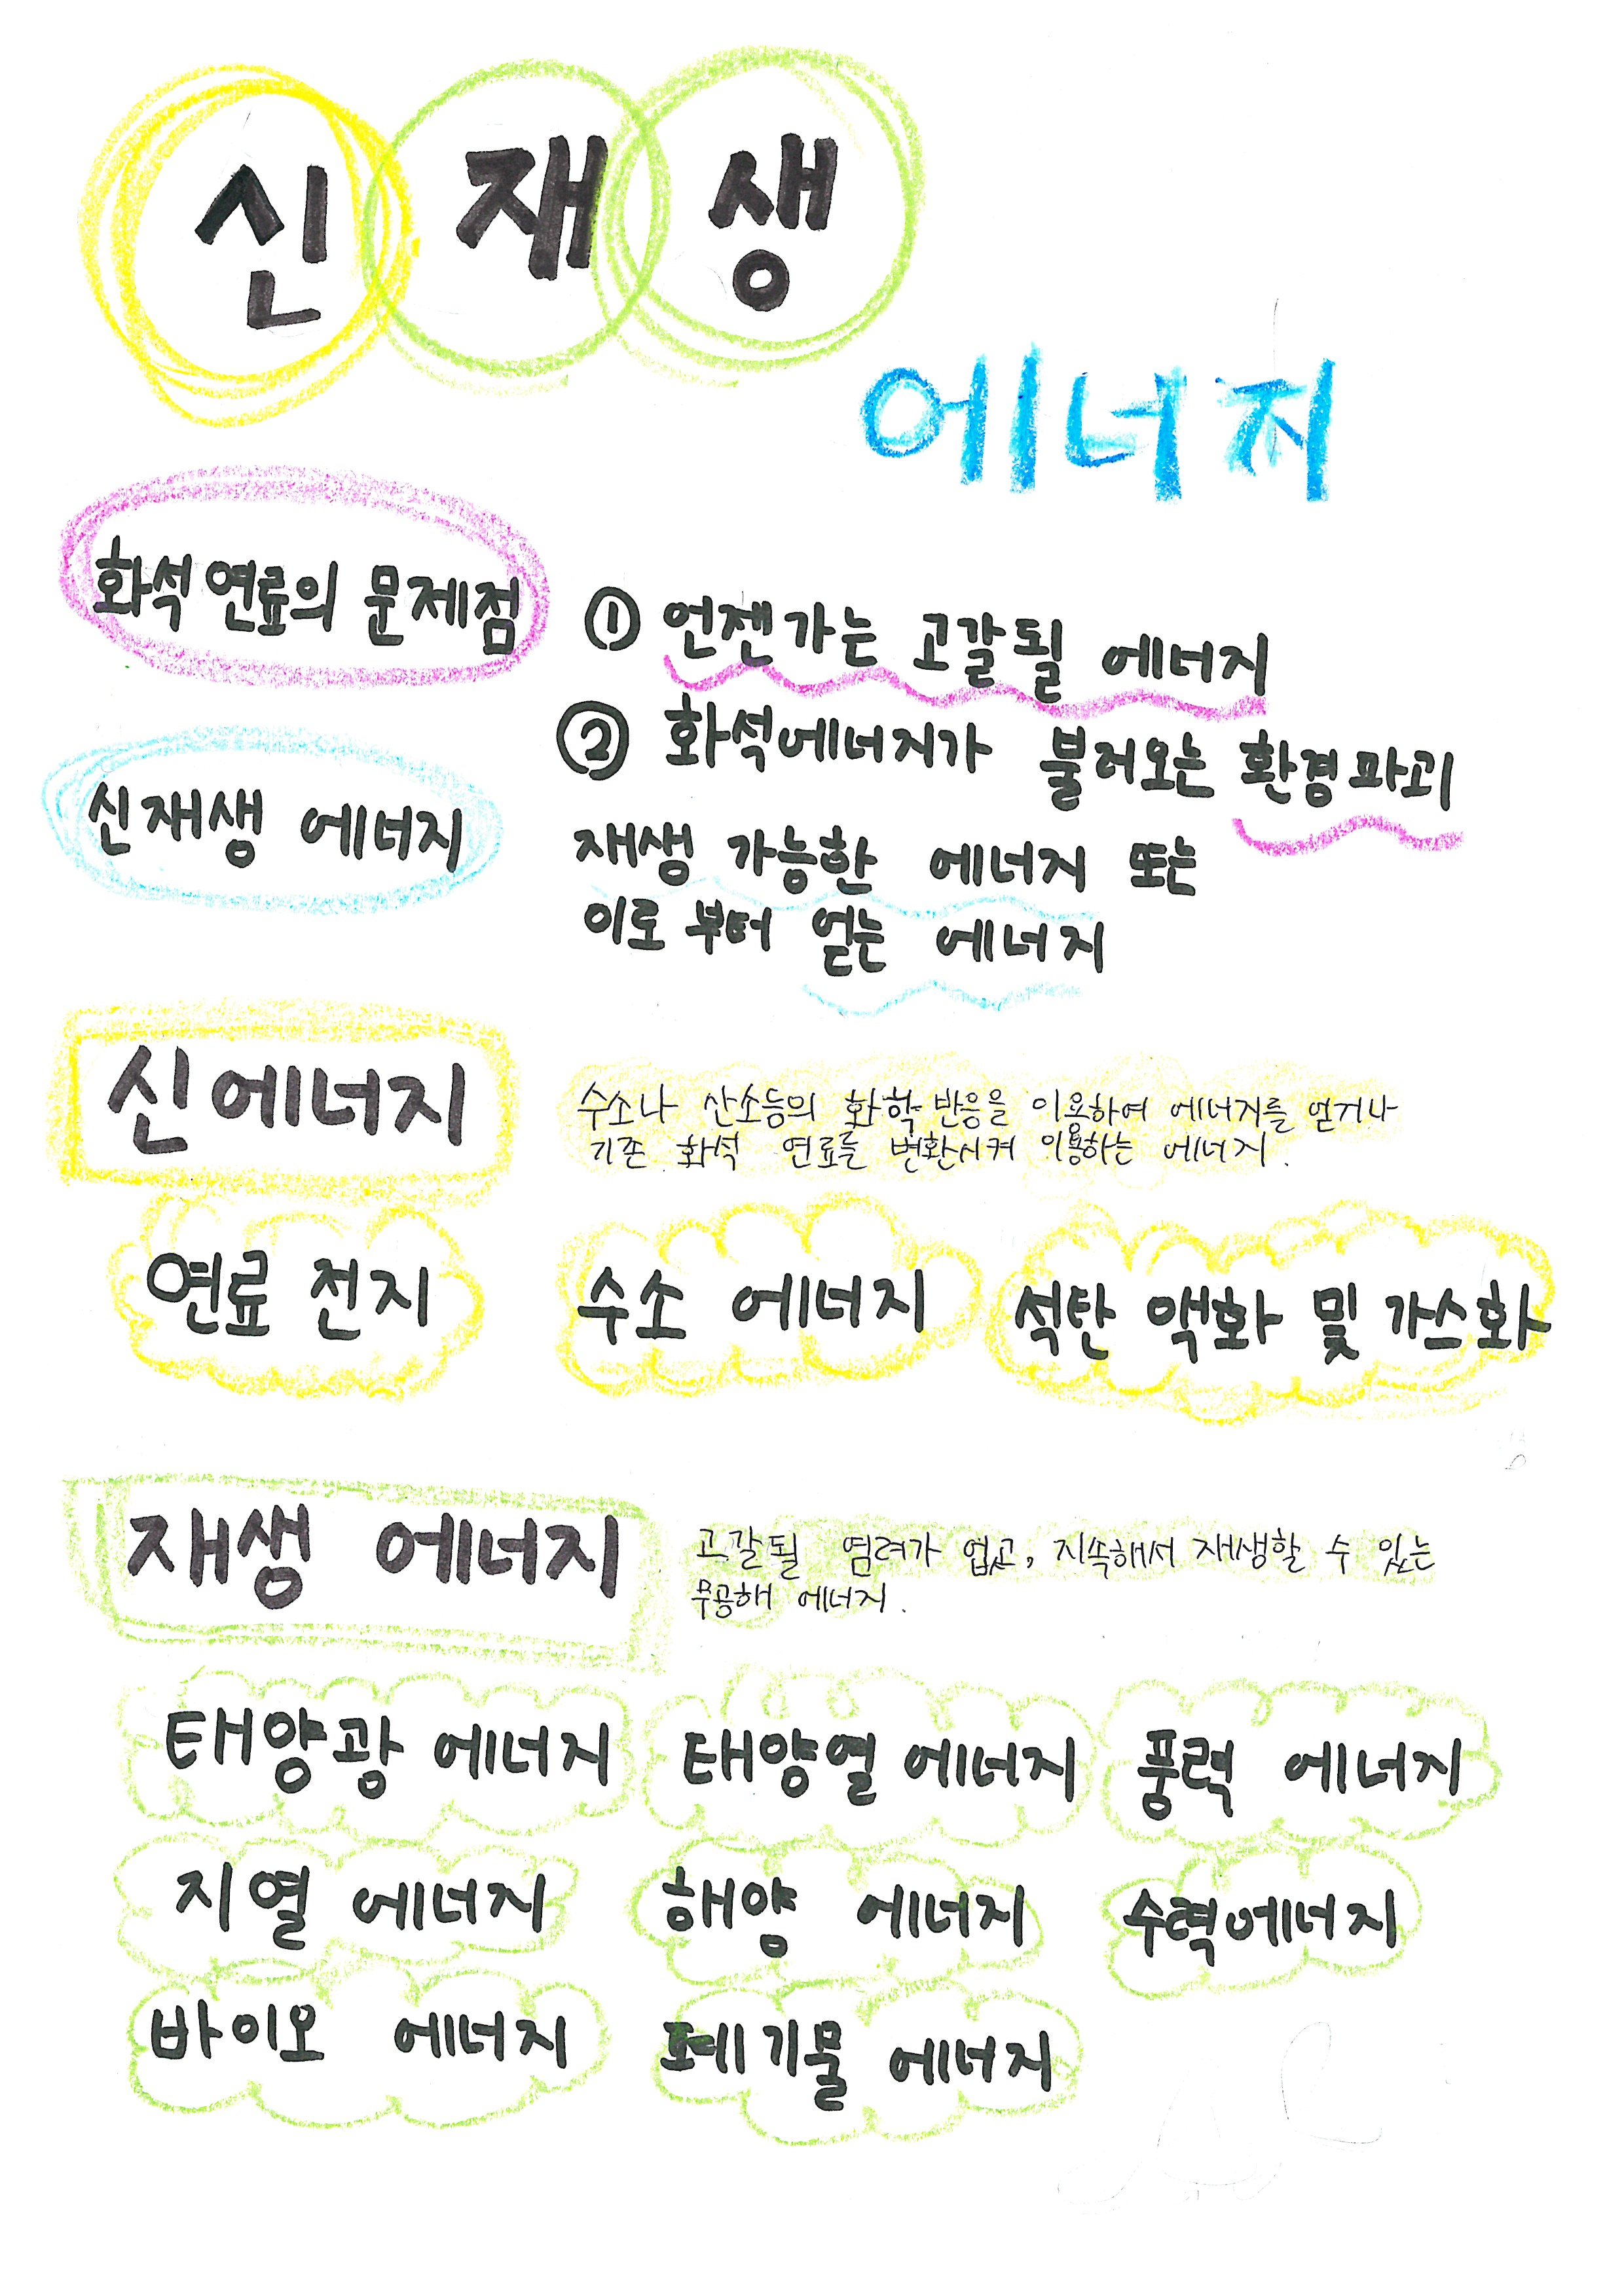 신재생
에너지
화석연료의 문제점
① 언젠가는 고갈될 에너지
② 화석에너지가 불러오는 환경파괴
신재생 에너지
재생 가능한 에너지 또는
이로 부터 얻는 에너지
신에너지
수소나 산소등의 화학 반응을 이용하여 에너지를 얻거나
기존 화석 연료를 변환시켜 이용하는 에너지.
연료 전지
수소 에너지
석탄 액화 및 가스화
재생 에너지
고갈될 염려가 없고, 지속해서 재생할 수 있는
무공해 에너지.
태양광 에너지
태양열 에너지
풍력 에너지
지열 에너지
해양 에너지
수력에너지
바이오 에너지
폐기물 에너지